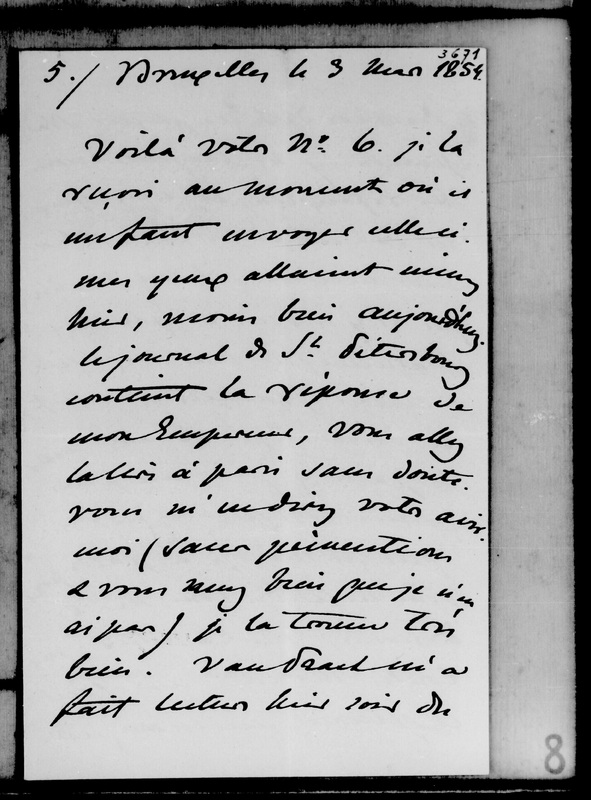 3671
5./ Bruxelles le 3 Mars 1854.
Voilà votre N° 6. je la
reçois au moment où je
fait envoyer celle ci.
mes yeux allaient mieux
hier, moins bien aujourd'huy.
le journal de St Petersbourg
contient la réponse de
mon Empereur, vous allez
la lire à paris sans doute.
vous m'en direz votre avis.
moi (sans prévention
& vous savez bien que je n'en
ai pas) je la trouve très
bien. Van Praet m'a
fait lecture hier soir du
8